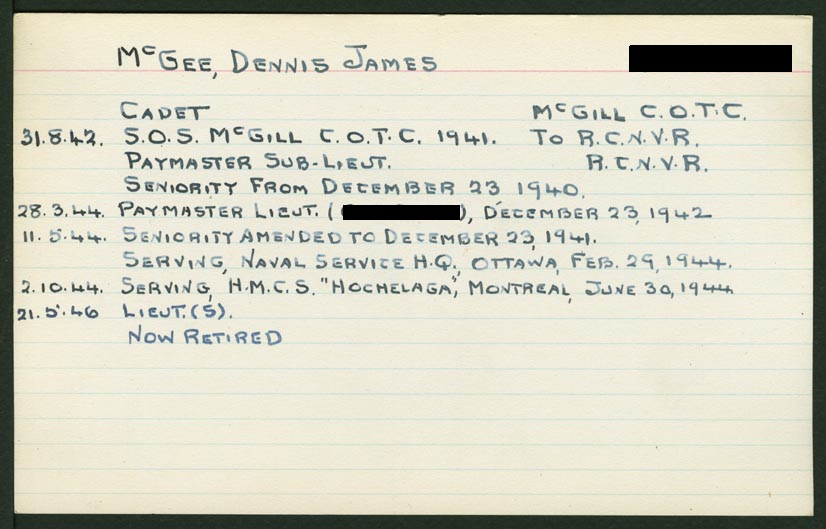 McGEE, DENNIS JAMES
CADET McGILL C.O.T.C.
31.8.42. S.O.S. McGILL C.O.T.C. 1941. TO R.C.N.V.R.
PAYMASTER SUB-LIEUT. R.C.N.V.R.
SENIORITY FROM DECEMBER 23 1940.
28.3.44. PAYMASTER LIEUT. ( ), DECEMBER 23, 1942
11.5.44. SENIORITY AMENDED TO DECEMBER 23, 1941.
SERVING, NAVAL SERVICE H.Q., OTTAWA, FEB. 29, 1944.
2.10.44. SERVING, H.M.C.S. "HOCHELAGA", MONTREAL, JUNE 30, 1944
21.5.46 LIEUT.(S).
NOW RETIRED